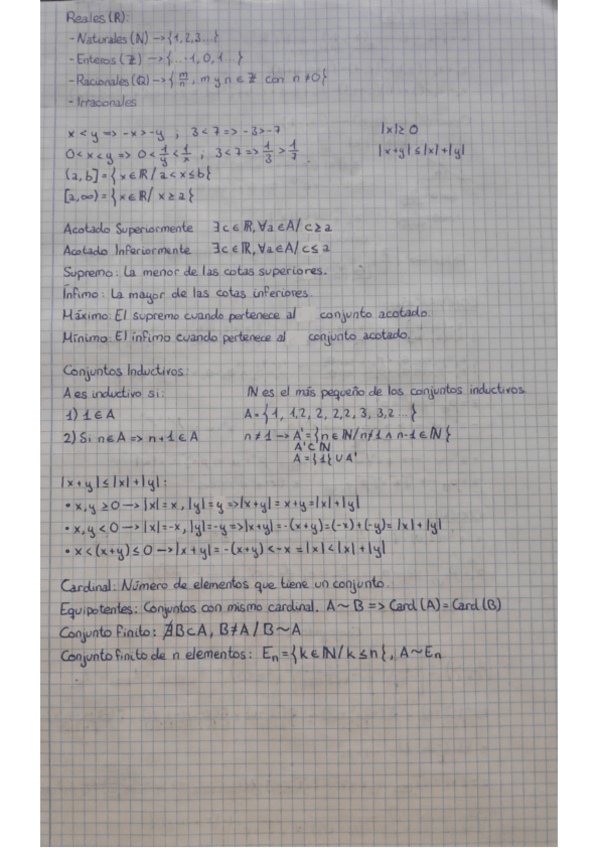 Reales (R):
- Naturales (N) → {1, 2, 3...}
- Enteros (ℤ) → {... -1, 0, 1...}
- Racionales (Q) → {m/n, m y n ∈ ℤ con n ≠ 0}
- Irracionales
x < y => -x > -y ; 3 < 7 => -3 > -7    |x| ≥ 0
0 < x < y => 0 < 1/y < 1/x ; 3 < 7 => 1/3 > 1/7    |x+y| ≤ |x| + |y|
(a, b] = {x ∈ ℝ / a < x ≤ b}
[a, ∞) = {x ∈ ℝ / x ≥ a}
Acotado Superiormente ∃c ∈ ℝ, ∀a ∈ A / c ≥ a
Acotado Inferiormente ∃c ∈ ℝ, ∀a ∈ A / c ≤ a
Supremo: La menor de las cotas superiores.
Ínfimo: La mayor de las cotas inferiores.
Máximo: El supremo cuando pertenece al conjunto acotado.
Mínimo: El ínfimo cuando pertenece al conjunto acotado.
Conjuntos Inductivos:
A es inductivo si:    ℕ es el más pequeño de los conjuntos inductivos
1) 1 ∈ A    A = {1, 1,2, 2, 2,2, 3, 3,2 ...}
2) Si n ∈ A => n+1 ∈ A    n ≠ 1 → A' = {n ∈ ℕ / n ≠ 1 ∧ n-1 ∈ ℕ}
A' ⊂ ℕ
A = {1} ∪ A'
|x+y| ≤ |x| + |y|:
• x, y ≥ 0 → |x| = x, |y| = y => |x+y| = x+y = |x| + |y|
• x, y < 0 → |x| = -x, |y| = -y => |x+y| = -(x+y) = (-x) + (-y) = |x| + |y|
• x < (x+y) ≤ 0 → |x+y| = -(x+y) < -x = |x| < |x| + |y|
Cardinal: Número de elementos que tiene un conjunto.
Equipotentes: Conjuntos con mismo cardinal. A ~ B => Card (A) = Card (B)
Conjunto finito: ∄ B ⊂ A, B ≠ A / B ~ A
Conjunto finito de n elementos: Eₙ = {k ∈ ℕ / k ≤ n}, A ~ Eₙ